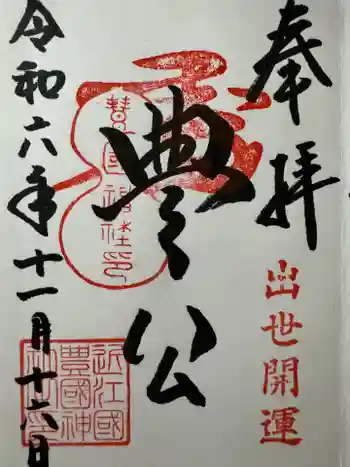 奉拝
出世開運
豊公
豊國神社印
近江國豊國神社印
令和六年十一月十六日